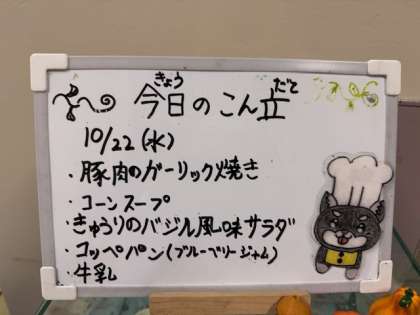 きょう だて
今日のこん立
10/22(水)
・豚肉のガーリック焼き
・コーンスープ
・きゅうりのバジル風味サラダ
・コッペパン(ブルーベリージャム)
・牛乳